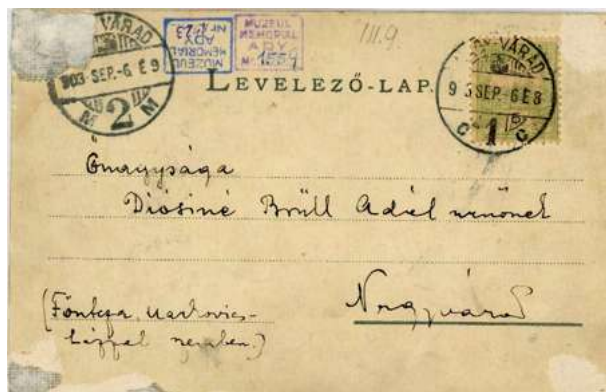 VÁRAD
903 SEP.-6 E 9
M 2 M
MUZEUL
MEMORIAL
ADY
MUZEUL
MEMORIAL
ADY
1559
III.9
LEVELEZŐ-LAP.
VÁRAD
SEP.-6 E 8
C 1 C
Őnagysága
Diósiné Brüll Adél urnőnek
Nagyvárad
(Főutcza, Markovics-
házzal szemben.)